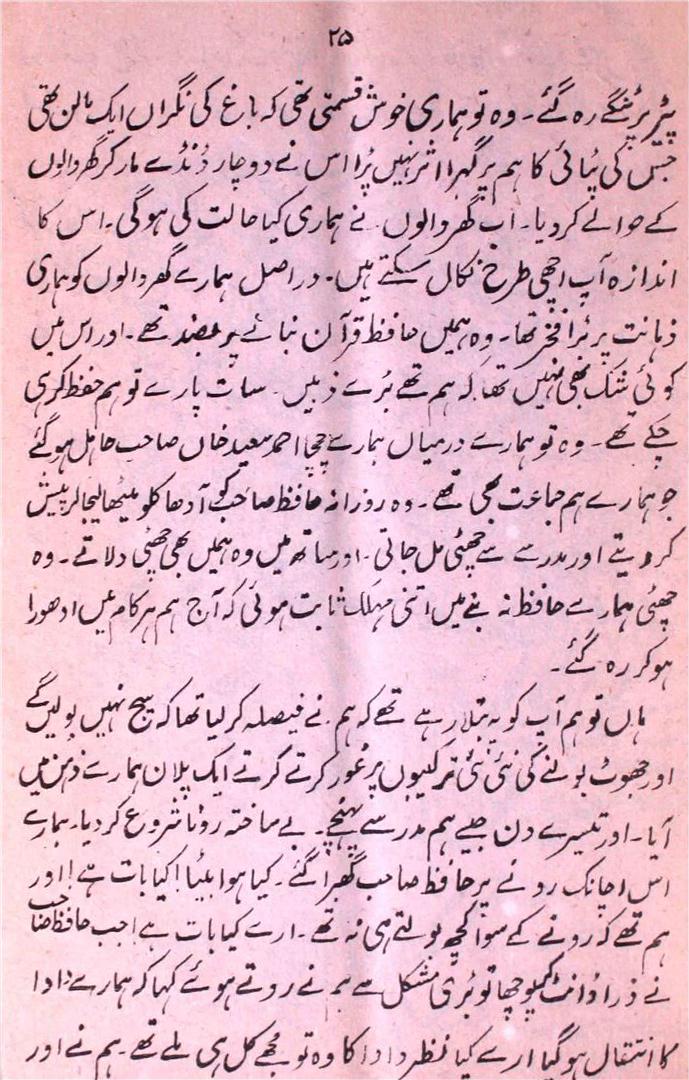 ۲۵
پٹر پر ٹنگے رہ گئے۔ وہ تو ہماری خوش قسمتی تھی کہ باغ کی نگراں ایک مالن تھی
جس کی پٹائی کا ہم پر گہرا اثر نہیں پڑا اس نے دو چار ڈنڈے مار کر گھر والوں
کے حوالے کر دیا۔ اب گھر والوں نے ہماری کیا حالت کی ہوگی۔ اس کا
اندازہ آپ اچھی طرح نکال سکتے ہیں۔ دراصل ہمارے گھر والوں کو ہماری
ذہانت پر بڑا فخر تھا۔ وہ ہمیں حافظ قرآن بنانے پر بضد تھے۔ اور اس میں
کوئی شک بھی نہیں تھا کہ ہم تھے بڑے ذہین۔ سات پارے تو ہم حفظ کر ہی
چکے تھے۔ وہ تو ہمارے درمیاں ہمارے چچا احمد سعید خاں صاحب حائل ہو گئے
جو ہمارے ہم جماعت بھی تھے۔ وہ روزانہ حافظ صاحب کو آدھا کلو میٹھا لیجا کر پیش
کر دیتے اور مدرسے سے چھٹی مل جاتی۔ اور ساتھ میں وہ ہمیں بھی چھٹی دلاتے۔ وہ
چھٹی ہمارے حافظ نہ بننے میں اتنی مہلک ثابت ہوئی کہ آج ہم ہر کام میں ادھورا
ہو کر رہ گئے۔
ہاں تو ہم آپ کو یہ بتلا رہے تھے کہ ہم نے فیصلہ کر لیا تھا کہ سچ نہیں بولیں گے
اور جھوٹ بولنے کی نئی نئی ترکیبوں پر غور کرتے کرتے ایک پلان ہمارے ذہن میں
آیا۔ اور تیسرے دن جیسے ہم مدرسے پہنچے۔ بے ساختہ رونا شروع کر دیا۔ ہمارے
اس اچانک رونے پر حافظ صاحب گھبرا گئے۔ کیا ہوا بیٹا! کیا بات ہے! اور
ہم تھے کہ رونے کے سوا کچھ بولتے ہی نہ تھے۔ ارے کیا بات ہے! جب حافظ صاحب
نے ذرا ڈانٹ کر پوچھا تو بڑی مشکل سے ہم نے روتے ہوئے کہا کہ ہمارے دادا
کا انتقال ہو گیا ارے کیا نظر دادا کا وہ تو مجھے کل ہی ملے تھے۔ ہم نے اور